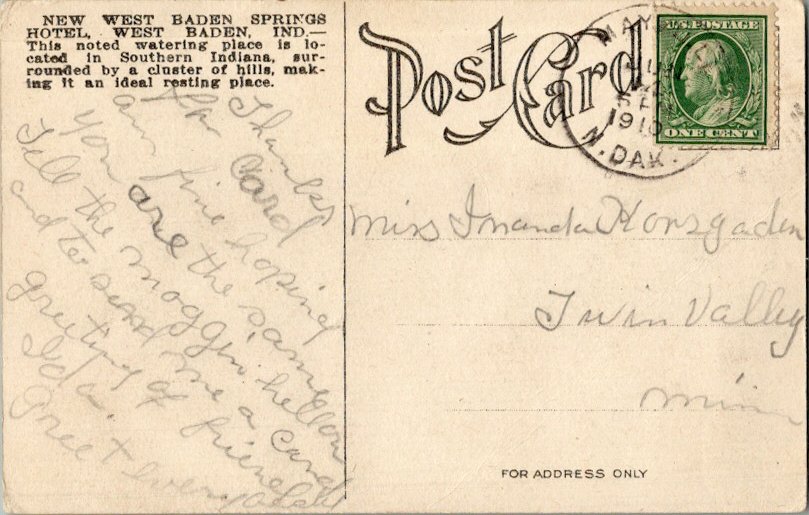 NEW WEST BADEN SPRINGS
HOTEL, WEST BADEN, IND.—
This noted watering place is lo-
cated in Southern Indiana, sur-
rounded by a cluster of hills, mak-
ing it an ideal resting place.
Thanks
for card
am fine hoping
you are the same
Tell the moggin hellow
and to send me a card
greeting of friend
Ida.
Greet everybody
Post Card
U.S. POSTAGE
ONE CENT
MAY
1910
N. DAK.
Miss Imanda Korsgaden
Twin Valley
Minn
FOR ADDRESS ONLY